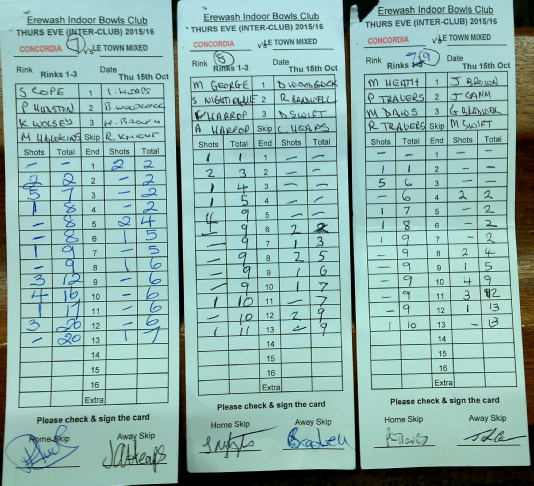 Erewash Indoor Bowls Club
THURS EVE (INTER-CLUB) 2015/16
CONCORDIA 7 v ILE TOWN MIXED
Rink Rinks 1-3 Date Thu 15th Oct
S COPE 1 I. HEAPS
P HUDSTON 2 B. WOODCOCK
K WOLSEY 3 H. BROWN
M HAWKINS Skip R. KNIGHT
Shots Total End Shots Total
- - 1 2 2
2 2 2 - 2
5 7 3 - 2
1 8 4 - 2
- 8 5 2 4
- 8 6 1 5
1 9 7 - 5
- 9 8 1 6
3 12 9 - 6
4 16 10 - 6
1 17 11 - 6
3 20 12 - 6
- 20 13 1 7
14
15
16
Extra
Please check & sign the card
Home Skip Away Skip
Erewash Indoor Bowls Club
THURS EVE (INTER-CLUB) 2015/16
CONCORDIA 8 v ILE TOWN MIXED
Rink Rinks 1-3 Date Thu 15th Oct
M GEORGE 1 D WOODCOCK
S NIGHTINGALE 2 R BRADWELL
HARROP 3 D SWIFT
A HARROP Skip C HEAPS
Shots Total End Shots Total
1 1 1 - -
2 3 2 - -
1 4 3 - -
1 5 4 - -
4 9 5 - -
- 9 6 2 2
- 9 7 1 3
- 9 8 2 5
- 9 9 1 6
- 9 10 1 7
1 10 11 - 7
- 10 12 2 9
1 11 13 - 9
14
15
16
Extra
Please check & sign the card
Home Skip Away Skip
Bradwell
Erewash Indoor Bowls Club
THURS EVE (INTER-CLUB) 2015/16
CONCORDIA 9 v ILE TOWN MIXED
Rink Rinks 1-3 Date Thu 15th Oct
M HEATH 1 J BROWN
P TRAVERS 2 J CANN
M DAWS 3 G BRADWELL
R TRAVERS Skip M SWIFT
Shots Total End Shots Total
- - 1 - -
1 1 2 - -
5 6 3 - -
- 6 4 2 2
1 7 5 - 2
1 8 6 - 2
1 9 7 - 2
- 9 8 2 4
- 9 9 1 5
- 9 10 4 9
- 9 11 3 12
- 9 12 1 13
1 10 13 - 13
14
15
16
Extra
Please check & sign the card
Home Skip Away Skip